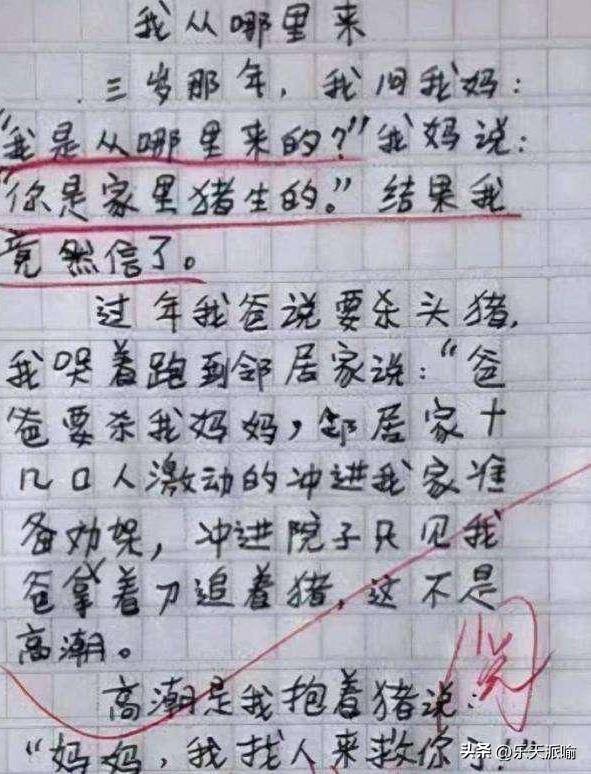 我从哪里来
三岁那年，我问我妈：
“我是从哪里来的？”我妈说：
“你是家里猪生的。”结果我
竟然信了。
过年我爸说要杀头猪，
我哭着跑到邻居家说：“爸
爸要杀我妈妈，邻居家十
几口人激动的冲进我家准
备劝架，冲进院子只见我
爸拿着刀追着猪，这不是
高潮。
高潮是我抱着猪说：
“妈妈，我找人来救你了！”
阅
头条 @乐天派喻